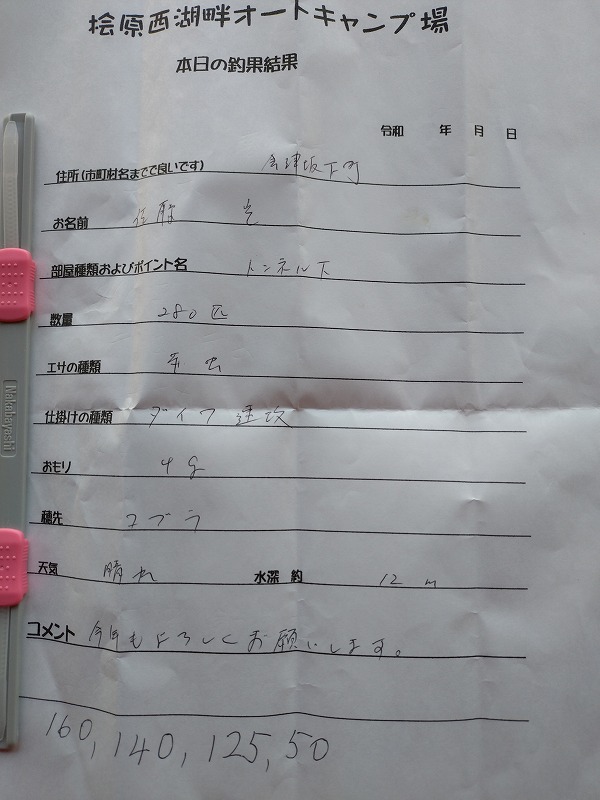 桧原西湖畔オートキャンプ場
本日の釣果結果
令和 年 月 日
住所(市町村名までで良いです) 会津坂下町
お名前 佐藤 光
部屋種類およびポイント名 トンネル下
数量 280匹
エサの種類 赤虫
仕掛けの種類 ダイワ 速攻
おもり 4g
穂先 コブラ
天気 晴れ 水深 約 12 m
コメント 今年もよろしくお願いします。
160, 140, 125, 50
Nakabayashi